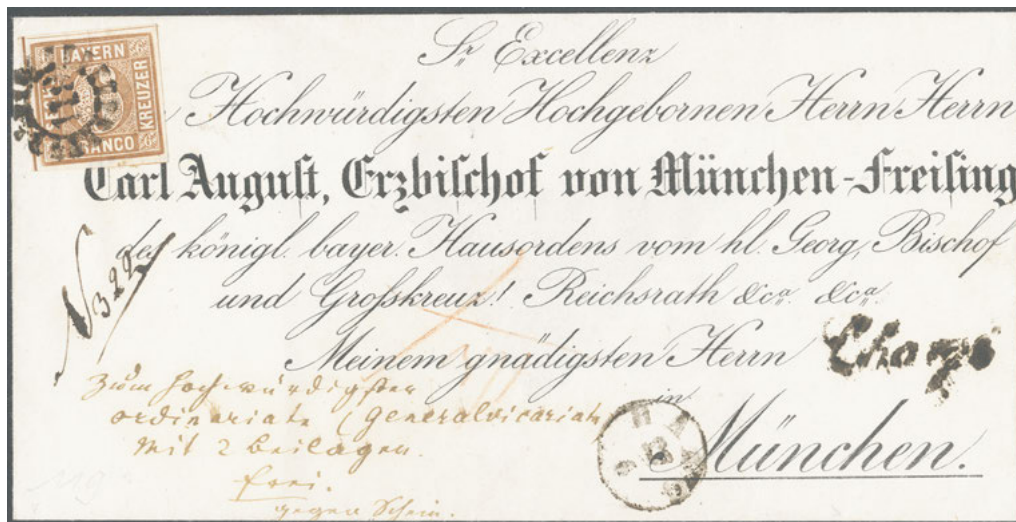 BAYERN
KREUZER
FRANCO
6
Sr. Excellenz
Hochwürdigsten Hochgebornen Herrn Herrn
Carl August, Erzbischof von München-Freising
des königl. bayer. Hausordens vom hl. Georg, Bischof
und Großkreuz! Reichsrath &ca. &ca.
Meinem gnädigsten Herrn
Chargé
in
München.
N 322
zum hochwürdigsten
ordinariate (generalvicariate
mit 2 beilagen.
frei.
gegen Schein.